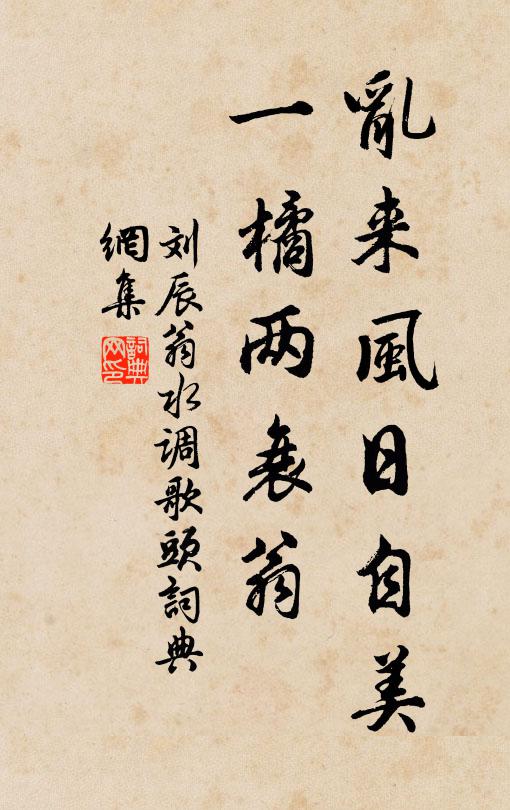 亂来風日自美
一橘两衰翁
刘辰翁水调歌頭詞典
網集
詞典网印